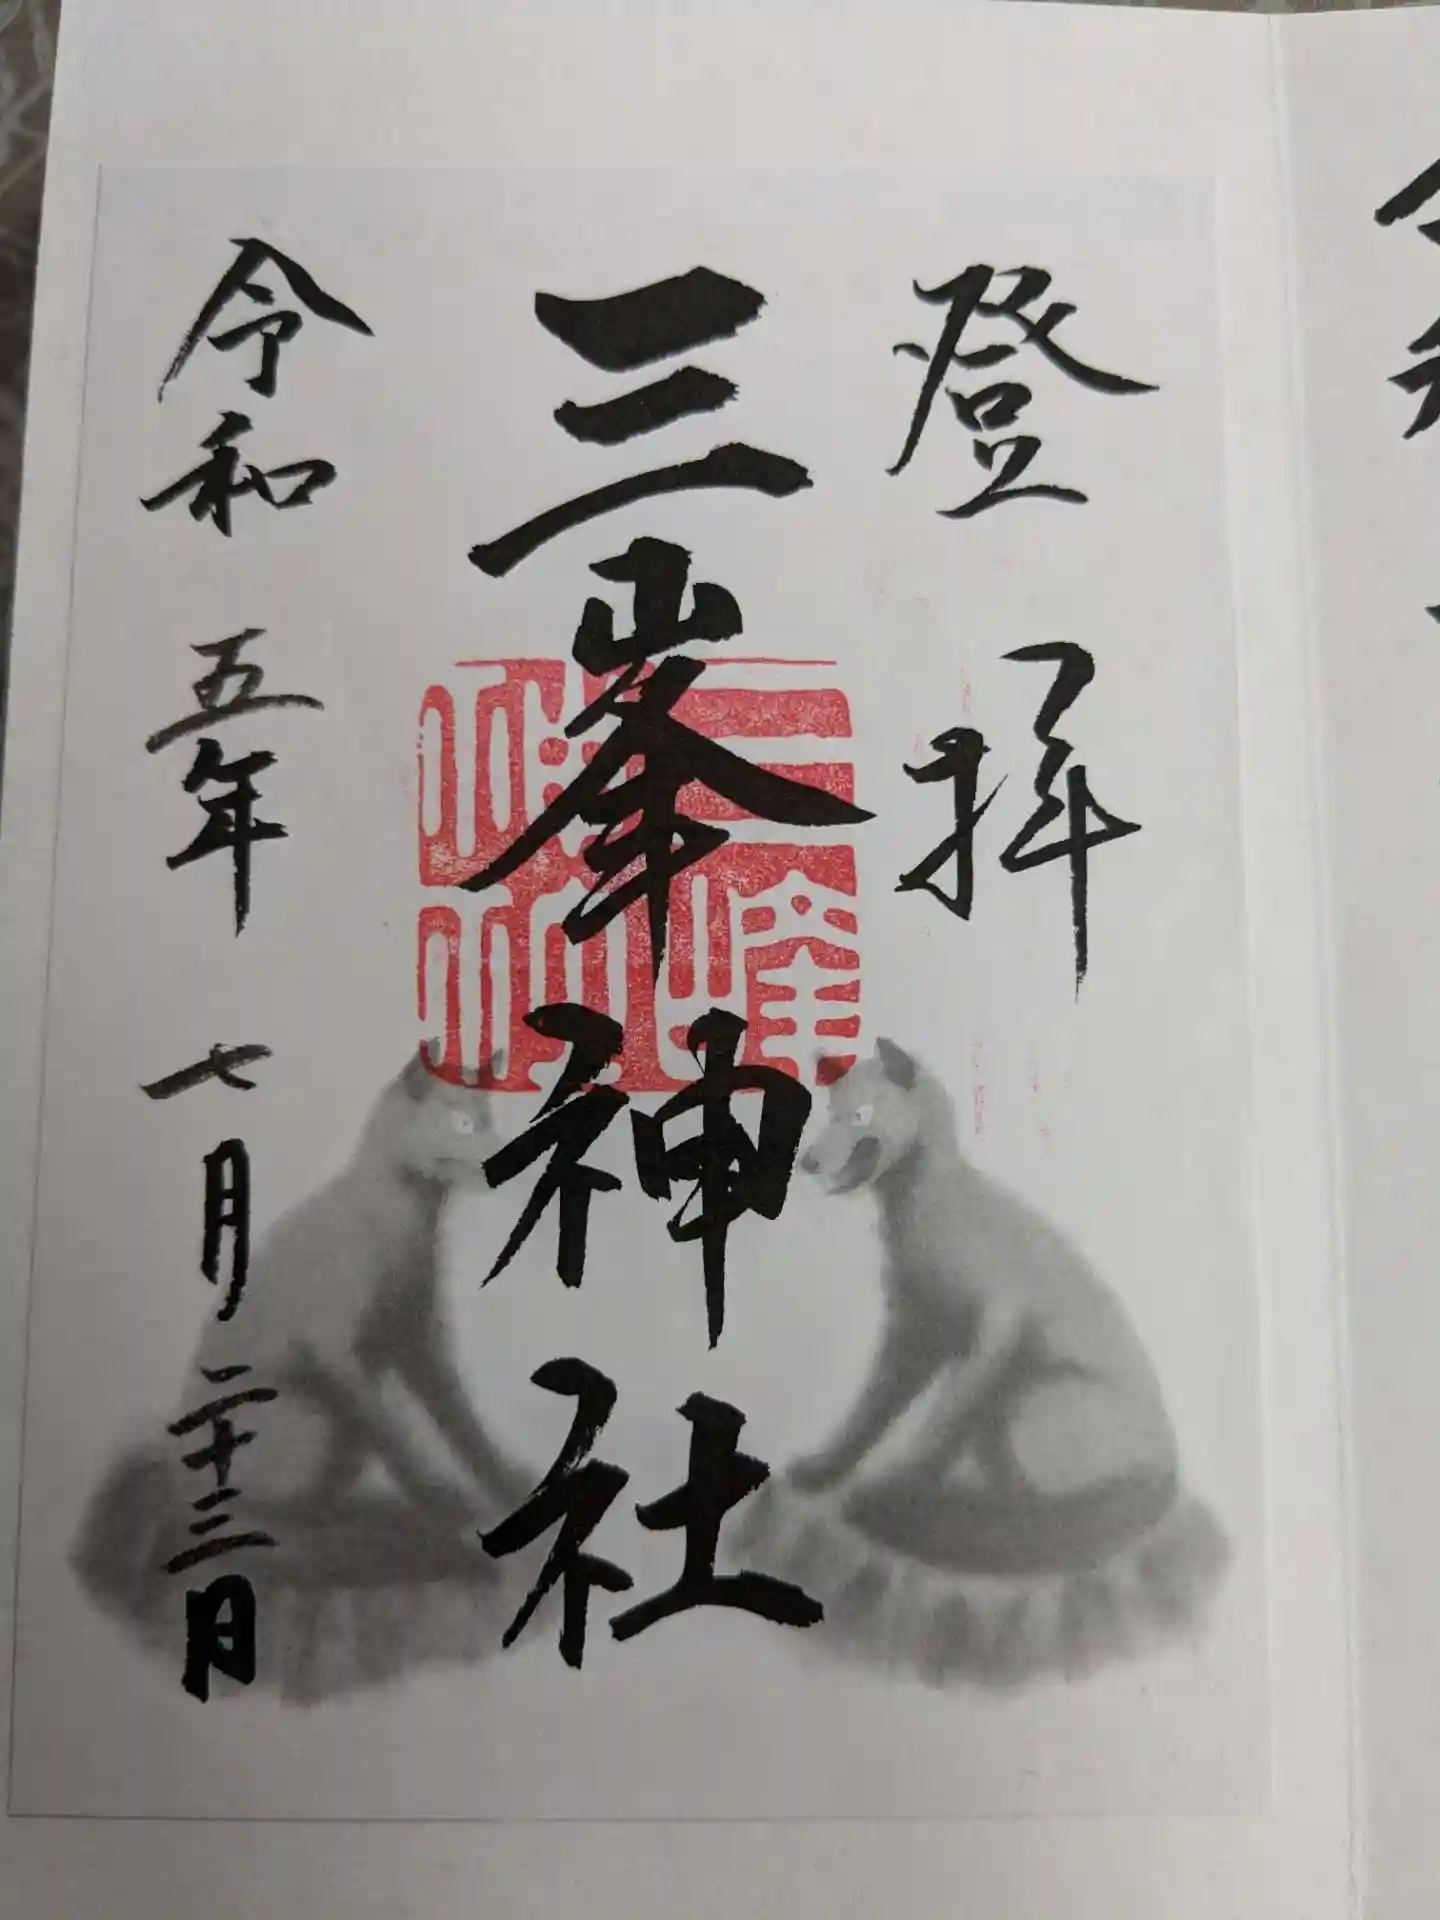 登拝
三峯神社
三峰神社
令和五年七月二十三日